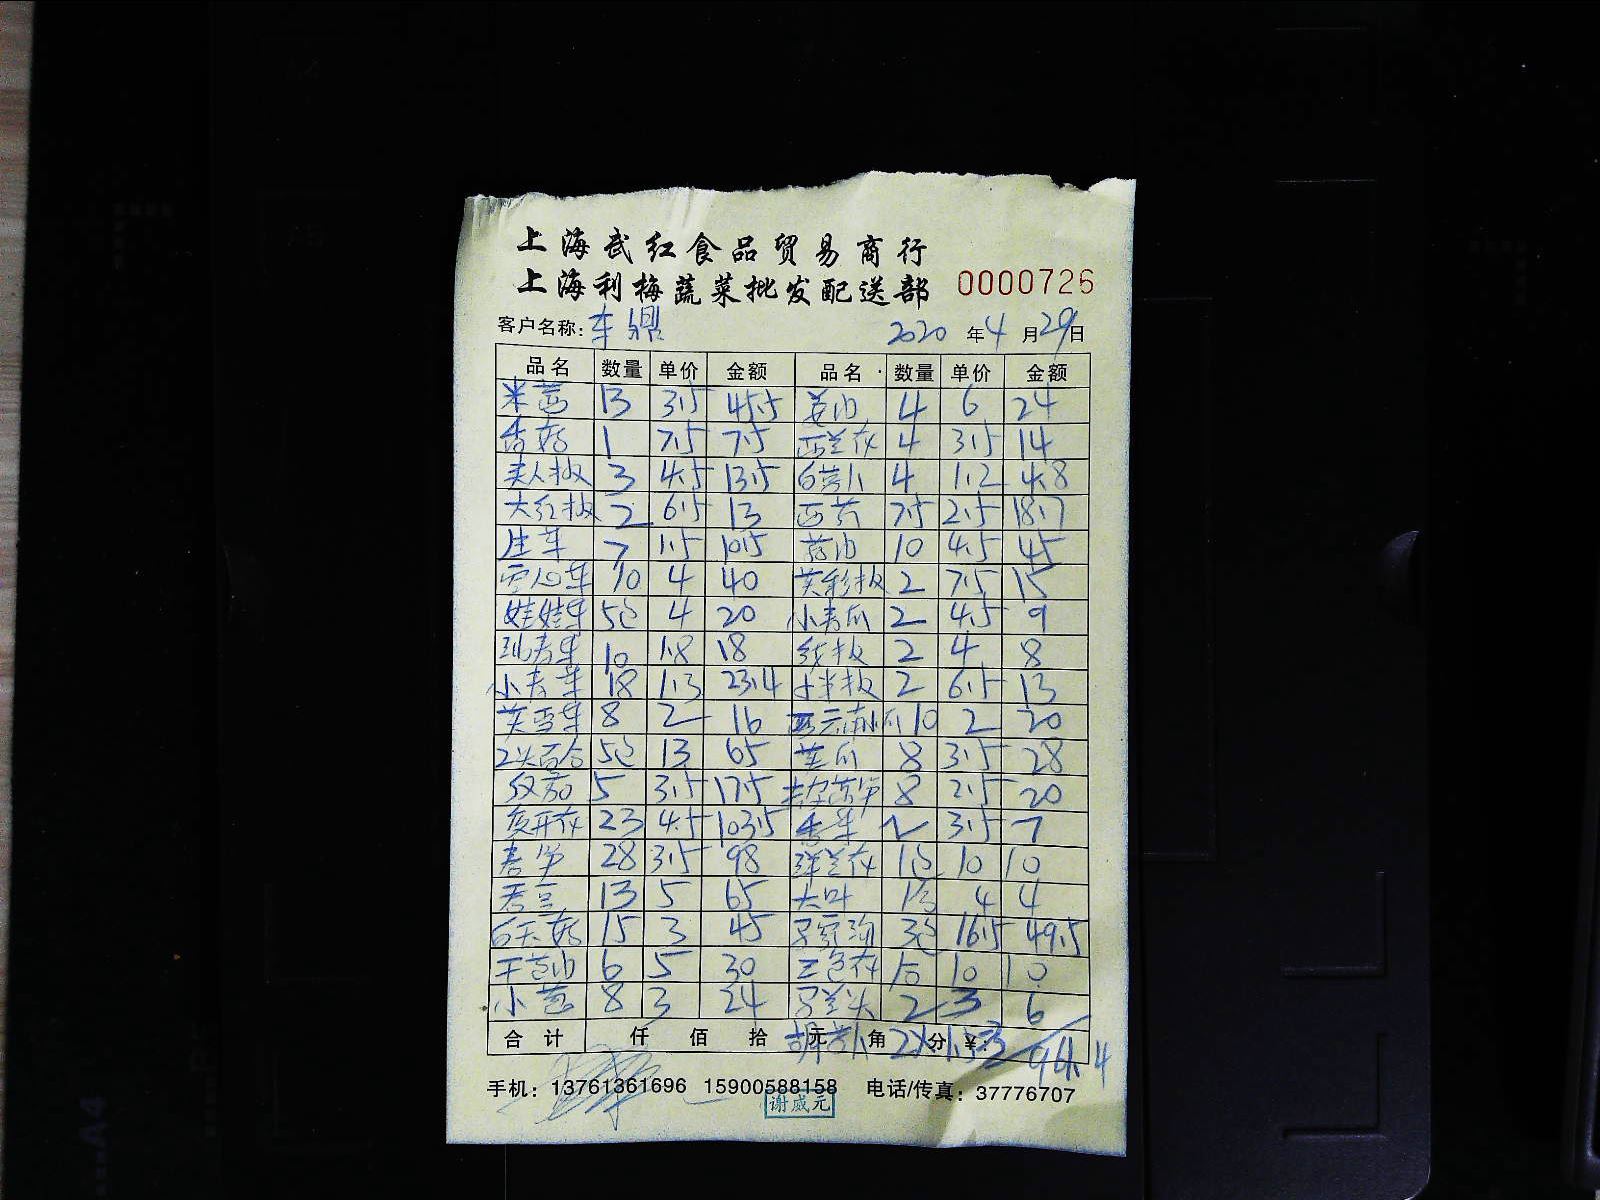 上海武红食品贸易商行
上海利梅蔬菜批发配送部 0000726
客户名称: 2020 年 4 月 29 日
品名 数量 单价 金额 品名 数量 单价 金额
米苋 13 3.5 45.5 4 6 24
香菇 1 7.5 7.5 西兰花 4 3.5 14
尖人椒 3 4.5 13.5 白萝卜 4 1.2 4.8
大红椒 2 6.5 13 西芹 7.5 2.5 18.7
生菜 7 1.5 10.5 10 4.5 45
10 4 40 2 7.5 15
娃娃菜 5包 4 20 小青瓜 2 4.5 9
10 1.8 18 线椒 2 4 8
小青菜 18 1.3 23.4 小米椒 2 6.5 13
8 2 16 10 2 20
2头百合 5包 13 65 8 3.5 28
5 3.5 17.5 8 2.5 20
23 4.5 103.5 香菜 2 3.5 7
春笋 28 3.5 98 洋兰花 1包 10 10
13 5 65 大叶 4 4
15 3 45 3包 16.5 49.5
6 5 30 三色花 10 10
小葱 8 3 24 马兰头 2 3 6
合计 仟 佰 拾 元 角 分 ¥: 胡萝卜 2×1.5=3 944.4
手机: 13761361696 15900588158 电话/传真: 37776707
谢威元